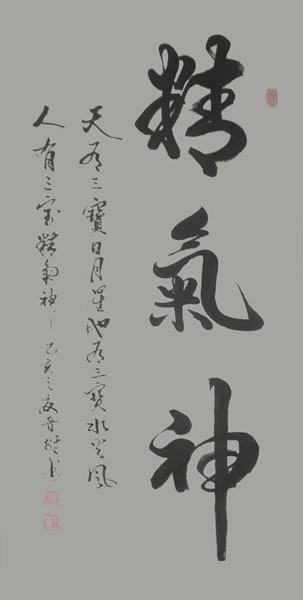 精氣神
天有三寶日月星地有三寶水火風
人有三宝精氣神
乙亥之夏